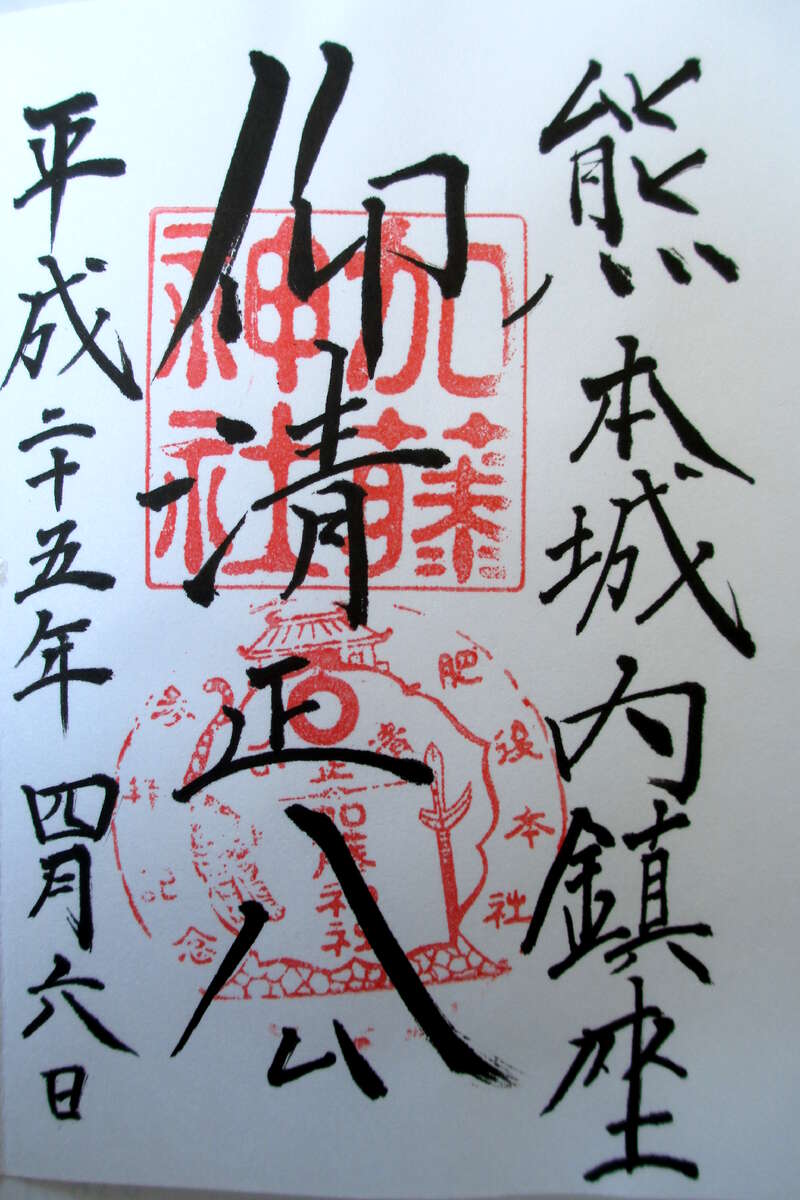 熊本城内鎮座
仰清正公
平成二十五年四月六日
加藤
神社
肥後本社
参拝記念
加藤神社